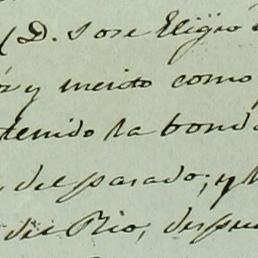 (D. Jose Eligio
y merito como
tenido la bond
del pasado; y
del Rio, despue